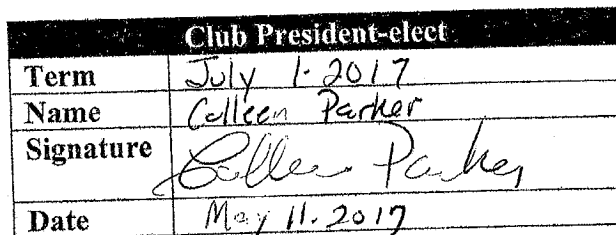 Club President-elect
Term July 1. 2017
Name Colleen Parker
Signature Colleen Parker
Date May 11. 2017